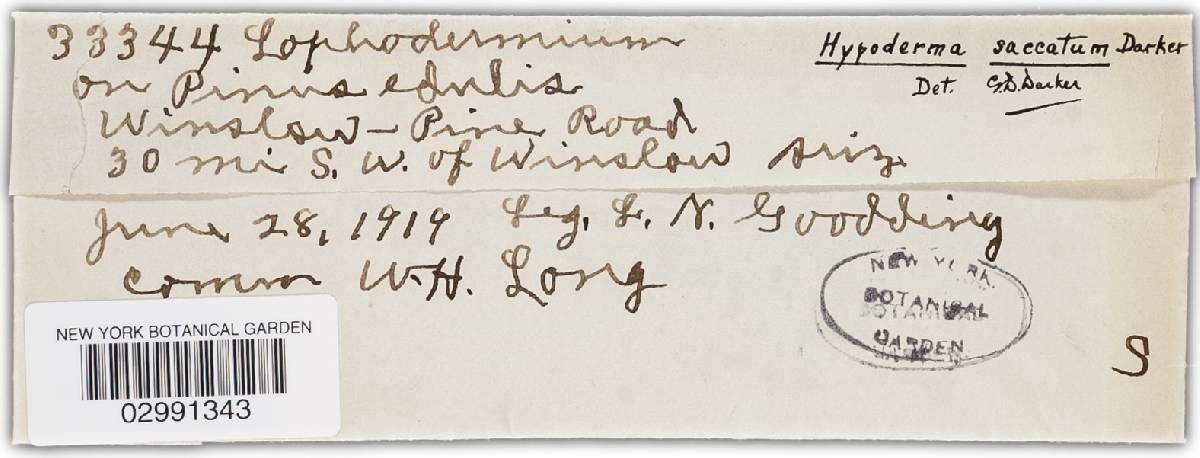 33344 Lophodermium
on Pinus edulis
Winslow - Pine Road
30 mi S. W. of Winslow Ariz.
Hypoderma saccatum Darker
Det. G.D. Darker
June 28, 1919 Leg. L. N. Goodding
comm W.H. Long
NEW YORK
BOTANICAL
GARDEN
S
NEW YORK BOTANICAL GARDEN
02991343